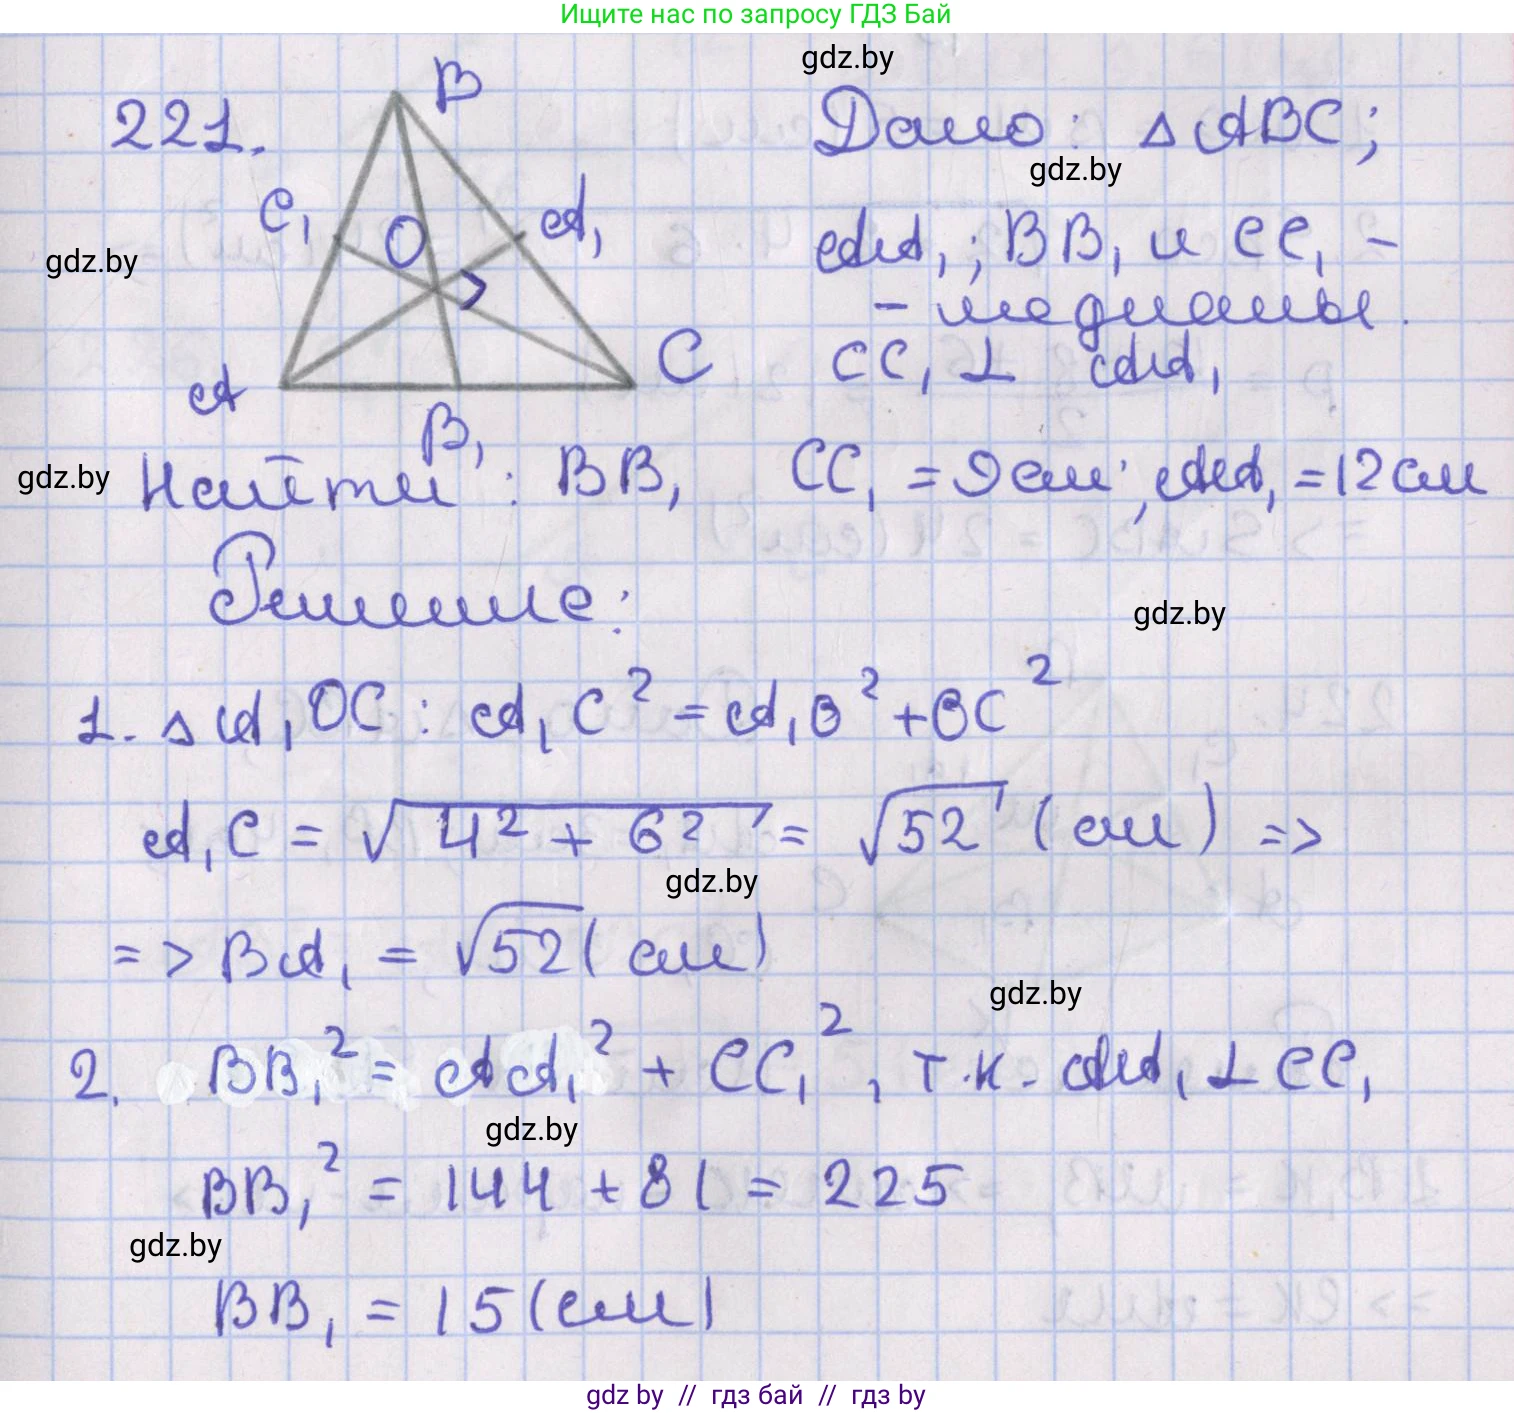 Ищите нас по запросу ГДЗ Бай
gdz.by
221.
B
Дано: △ABC;
gdz.by
C₁
O
A₁
AA₁; BB₁ и CC₁ -
gdz.by
- медианы.
A
C
CC₁ ⊥ AA₁
B₁
gdz.by
Найти: BB₁
CC₁ = 9 см; AA₁ = 12 см
Решение:
gdz.by
1. △A₁OC: A₁C² = A₁O² + OC²
A₁C = √4² + 6² = √52 (см) =>
gdz.by
=> BA₁ = √52 (см)
gdz.by
2. BB₁² = AA₁² + CC₁², т.к. AA₁ ⊥ CC₁
gdz.by
BB₁² = 144 + 81 = 225
gdz.by
BB₁ = 15 (см)
gdz by // гдз бай // гдз by